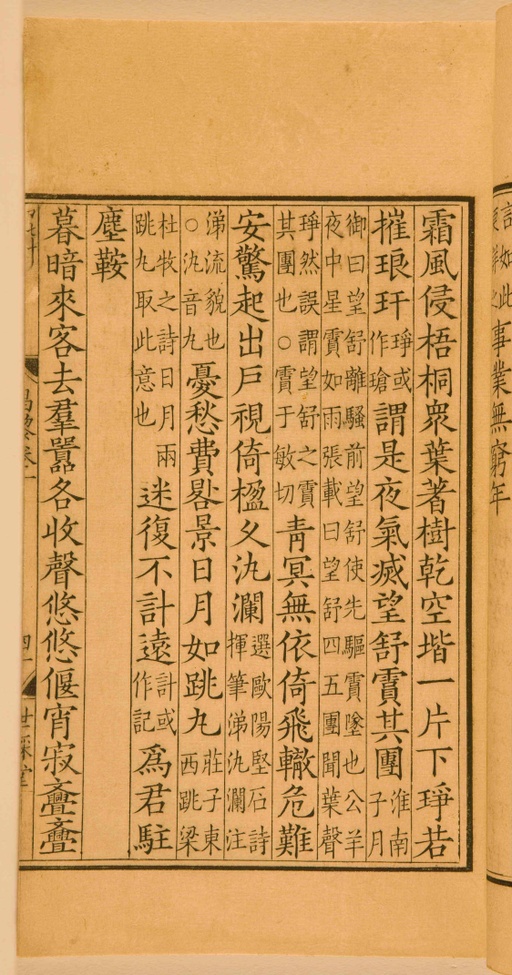 事業無窮年
霜風侵梧桐衆葉著樹乾空堦一片下琤若
摧琅玕琤或作瑲謂是夜氣滅望舒霣其團淮南子月
御曰望舒離騷前望舒使先驅霣墜也公羊
夜中星霣如雨張載曰望舒四五團聞葉聲
琤然誤謂望舒之霣其團也○霣于敏切青冥無依倚飛轍危難
安驚起出戶視倚楹久汍瀾選歐陽堅石詩揮筆涕汍瀾注
涕流貌也○汍音丸憂愁費晷景日月如跳丸莊子東西跳梁
杜牧之詩日月兩跳丸取此意也迷復不計遠計或作記爲君駐
塵鞍
暮暗來客去羣囂各收聲悠悠偃宵寂亹亹